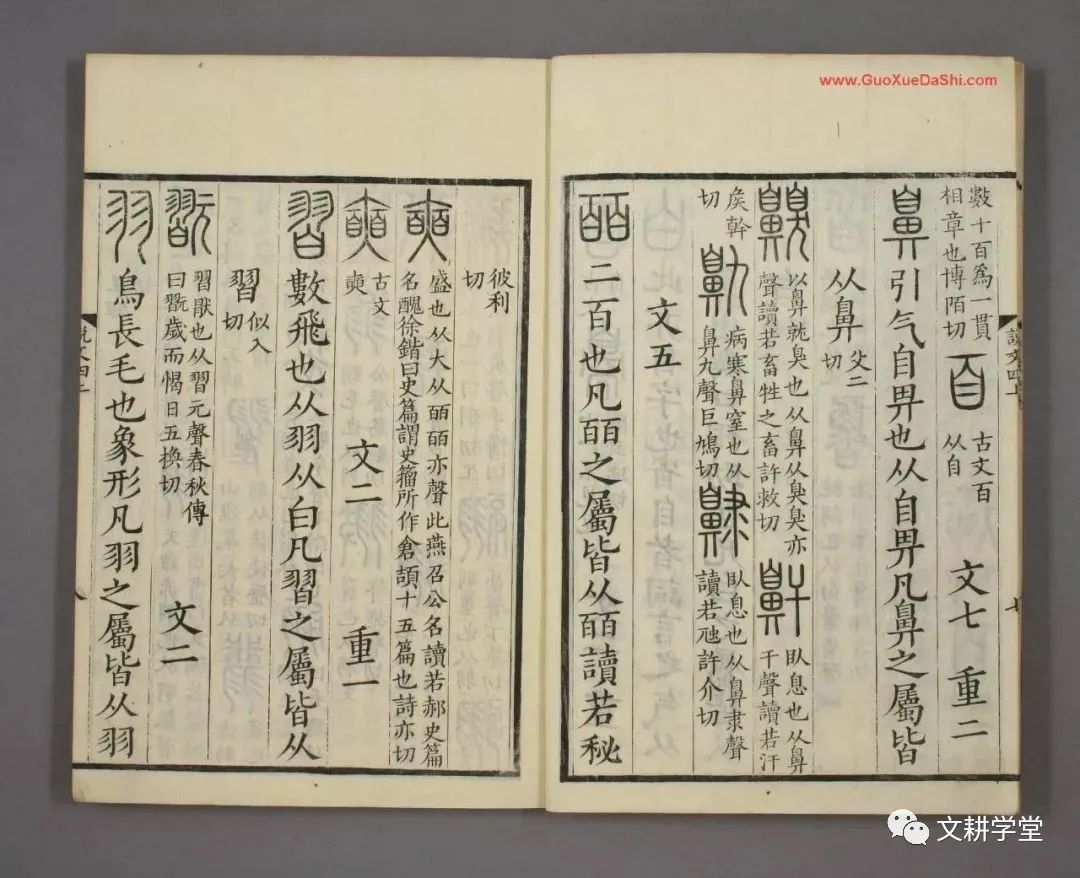 www.GuoXueDaShi.com
數十百為一貫相章也博陌切百古文百从自 文七 重二
鼻引气自畀也从自畀凡鼻之屬皆
从鼻父二切
齅以鼻就臭也从鼻从臭臭亦聲讀若畜牲之畜許救切鼾臥息也从鼻干聲讀若汗
矦幹切鼽病寒鼻窒也从鼻九聲巨鳩切齂臥息也从鼻隶聲讀若虺許介切
文五
皕二百也凡皕之屬皆从皕讀若秘
彼利切
奭盛也从大从皕皕亦聲此燕召公名讀若郝史篇名醜徐鍇曰史篇謂史籒所作倉頡十五篇也詩亦切
奭古文奭 文二 重一
習數飛也从羽从白凡習之屬皆从
習似入切
翫習猒也从習元聲春秋傳曰翫歲而愒日五換切 文二
羽鳥長毛也象形凡羽之屬皆从羽
文耕学堂